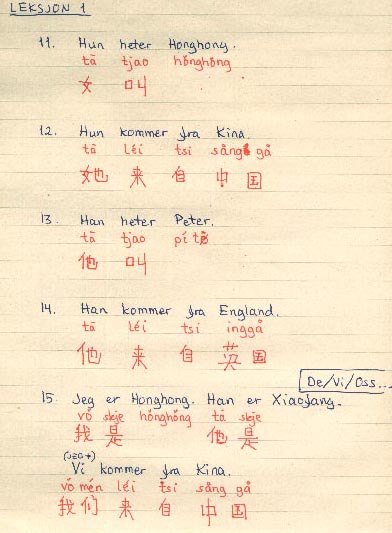 LEKSJON 1
11. Hun heter Honghong.
tā tjao hǒnghǒng
女 叫
12. Hun kommer fra Kina.
tā léi tsi sång gå
她 来 自 中 国
13. Han heter Peter.
tā tjao pí tě
他 叫
14. Han kommer fra England.
tā léi tsi inggå
他 来 自 英 国
De/Vi/Oss...
15. Jeg er Honghong. Han er Xiaofang.
vǒ skje hǒnghǒng tā skje
我 是 他 是
(JEG+)
Vi kommer fra Kina.
vǒ mén léi tsi sång gå
我们 来 自 中 国